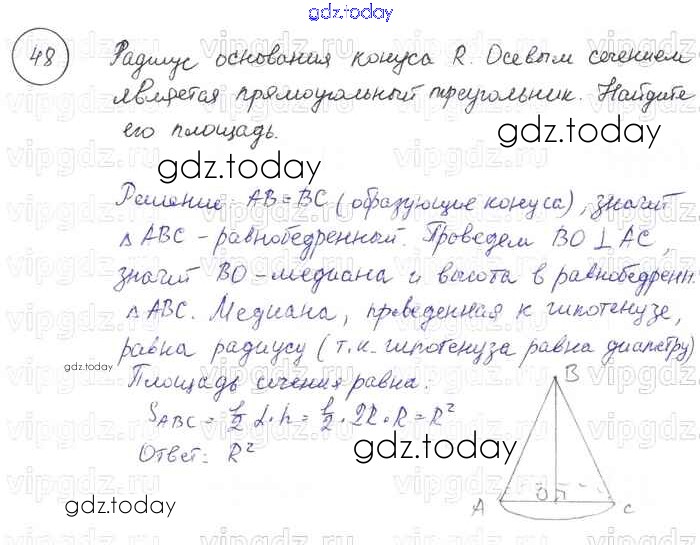 gdz.today
48
Радиус основания конуса R. Осевым сечением
является прямоугольный треугольник. Найдите
его площадь.
gdz.today
gdz.today
Решение: AB = BC (образующие конуса), значит
△ ABC - равнобедренный. Проведем BO ⊥ AC,
значит BO - медиана и высота в равнобедренн.
△ ABC. Медиана, проведенная к гипотенузе,
равна радиусу (т.к. гипотенуза равна диаметру)
gdz.today
Площадь сечения равна:
S ABC = 1/2 d·h = 1/2 · 2R · R = R²
Ответ: R²
gdz.today
gdz.today
B
A
O
C
vipgdz.ru